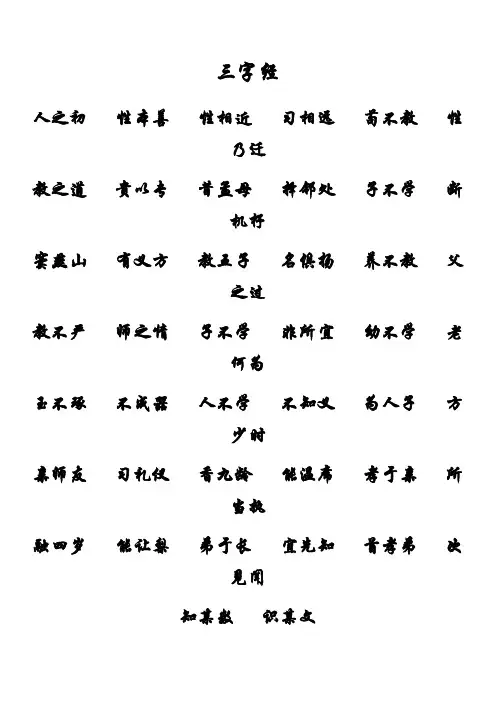 三字经
人之初 性本善 性相近 习相远 苟不教 性
乃迁
教之道 贵以专 昔孟母 择邻处 子不学 断
机杼
窦燕山 有义方 教五子 名俱扬 养不教 父
之过
教不严 师之惰 子不学 非所宜 幼不学 老
何为
玉不琢 不成器 人不学 不知义 为人子 方
少时
亲师友 习礼仪 香九龄 能温席 孝于亲 所
当执
融四岁 能让梨 弟于长 宜先知 首孝弟 次
见闻
知某数 识某文